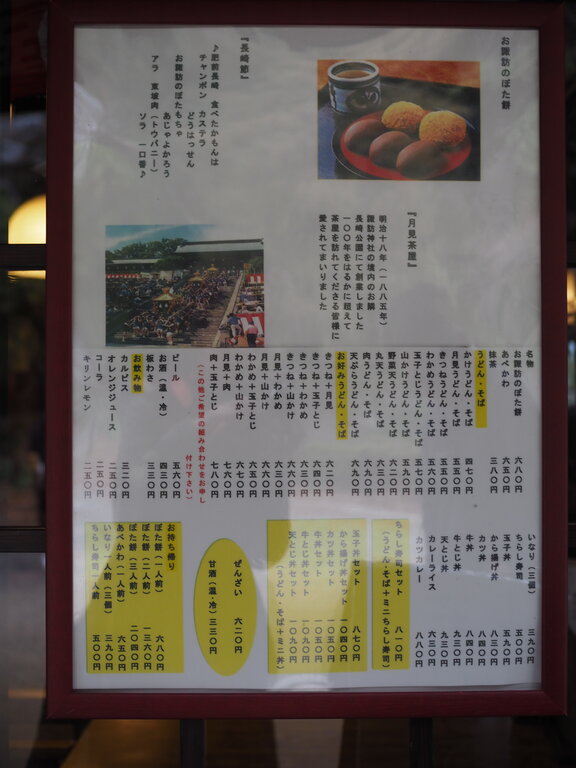 お諏訪のぼた餅
『月見茶屋』
明治十八年（一八八五年）
諏訪神社の境内のお隣
長崎公園にて創業しました
一〇〇年をはるかに超えて
茶屋を訪れてくださる皆様に
愛されてまいりました
『長崎節』
♪肥前長崎 食べたかもんは
チャンポン カステラ
どうはっせん
お諏訪のぼたもちゃ
あじゃよかろう
アラ 東坡肉（トウパニー）
ソラ 一口香♪
名物
お諏訪のぼた餅 六八〇円
あべかわ 六五〇円
抹茶 三八〇円
うどん・そば
かけうどん・そば 四七〇円
月見うどん・そば 五五〇円
きつねうどん・そば 五五〇円
わかめうどん・そば
玉子とじうどん・そば
山かけうどん・そば 五九〇円
野菜うどん・そば 六二〇円
丸天うどん・そば
肉うどん・そば 六九〇円
天ぷらうどん・そば 六九〇円
お好みうどん・そば
きつね＋月見 六二〇円
きつね＋玉子とじ 六四〇円
きつね＋わかめ
きつね＋山かけ
月見＋わかめ
月見＋山かけ
わかめ＋玉子とじ
わかめ＋山かけ
月見＋肉 七六〇円
肉＋玉子とじ 七八〇円
（この他ご希望の組み合わせをお申し
付け下さい）
ビール 五六〇円
お酒（温・冷） 四三〇円
板わさ 三三〇円
お飲み物
カルピス 三二〇円
オレンジジュース 二五〇円
コーラ 二五〇円
キリンレモン 二五〇円
いなり（三個） 三九〇円
ちらし寿司 五〇〇円
玉子丼 五九〇円
から揚げ丼 八三〇円
カツ丼 八四〇円
牛丼 八四〇円
牛とじ丼 九三〇円
天とじ丼 九三〇円
カレーライス 六三〇円
カツカレー 八八〇円
ちらし寿司セット 八一〇円
（うどん・そば＋ミニちらし寿司）
玉子丼セット 八七〇円
から揚げ丼セット 一〇四〇円
カツ丼セット 一〇五〇円
牛丼セット 一〇五〇円
牛とじ丼セット 一〇九〇円
天とじ丼セット 一〇九〇円
（うどん・そば＋ミニ丼）
ぜんざい 六二〇円
甘酒（温・冷） 三三〇円
お持ち帰り
ぼた餅（一人前） 六八〇円
ぼた餅（二人前） 一三六〇円
ぼた餅（三人前） 二〇四〇円
あべかわ（一人前） 六五〇円
いなり一人前（三個） 三九〇円
ちらし寿司一人前 五〇〇円